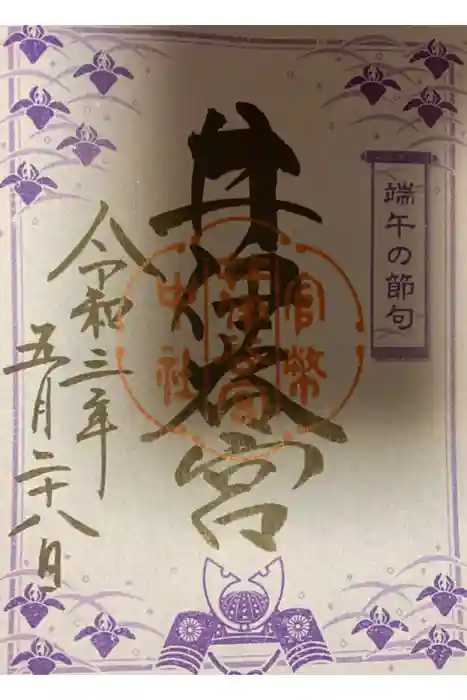 端午の節句
井伊谷宮
官幣
井伊谷宮
中社
令和三年
五月二十八日